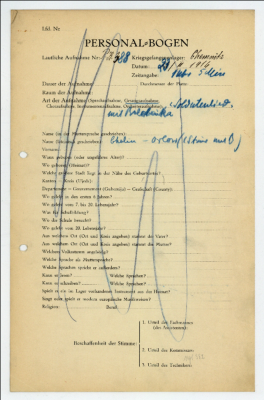 Lfd. Nr.
PERSONAL-BOGEN
Lautliche Aufnahme Nr.: Kriegsgefangenenlager: Chemnitz
Datum:
Zeitangabe:
Dauer der Aufnahme: Durchmesser der Platte:
Raum der Aufnahme:
Art der Aufnahme (Sprechaufnahme, Gesangsaufnahme, Choraufnahme, Instrumentenaufnahme, Orchesteraufnahme): Soldatenlied
mit Balalaika
Name (in der Muttersprache geschrieben):
Name (lateinisch geschrieben):
Vorname:
Wann geboren (oder ungefähres Alter)?
Wo geboren (Heimat)?
Welche grössere Stadt liegt in der Nähe des Geburtsortes?
Kanton — Kreis (Ujedz):
Departement — Gouvernement (Gubernija) — Grafschaft (County):
Wo gelebt in den ersten 6 Jahren?
Wo gelebt vom 7. bis 20. Lebensjahr?
Was für Schulbildung?
Wo die Schule besucht?
Wo gelebt vom 20. Lebensjahr?
Aus welchem Ort (Ort und Kreis angeben) stammt der Vater?
Aus welchem Ort (Ort und Kreis angeben) stammt die Mutter?
Welchem Volksstamm angehörig?
Welche Sprache als Muttersprache?
Welche Sprachen spricht er ausserdem?
Kann er lesen? Welche Sprachen?
Kann er schreiben? Welche Sprachen?
Spielt er ein im Lager vorhandenes Instrument aus der Heimat?
Singt oder spielt er modern europäische Musikweisen?
Religion: Beruf:
1. Urteil des Fachmannes
(des Assistenten):
Beschaffenheit der Stimme:
2. Urteil des Kommissars:
3. Urteil des Technikers: